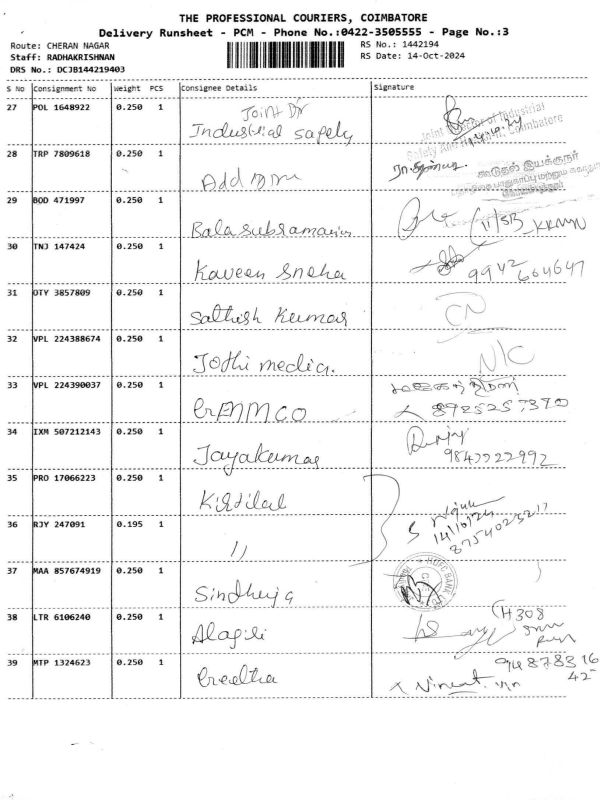 THE PROFESSIONAL COURIERS, COIMBATORE
Delivery Runsheet - PCM - Phone No.:0422-3505555 - Page No.:3
Route: CHERAN NAGAR
RS No.: 1442194
Staff: RADHAKRISHNAN
RS Date: 14-Oct-2024
DRS No.: DCJB144219403
S No Consignment No Weight PCS Consignee Details Signature
27 POL 1648922 0.250 1 Joint Dr
Industrial safety
Joint Director of Industrial
Safety And Coimbatore
28 TRP 7809618 0.250 1
கூடுதல் இயக்குநர்
Add
29 BOD 471997 0.250 1
Balasubramaniam
30 TNJ 147424 0.250 1
Kaveen Sneha 9942 604647
31 OTY 3857809 0.250 1
Sathish Kumar CN
32 VPL 224388674 0.250 1
Jothi media. N/C
33 VPL 224390037 0.250 1
8925257390
34 IXM 507212143 0.250 1
Jayakumar 9847722992
35 PRO 17066223 0.250 1
Kirtilal
36 RJY 247091 0.195 1
14/10/24
8754023217
11
37 MAA 857674919 0.250 1
HDFC BANK
Sindhuja
38 LTR 6106240 0.250 1
CH308
Alagiri
39 MTP 1324623 0.250 1
94878316
42
Creatha Vincent